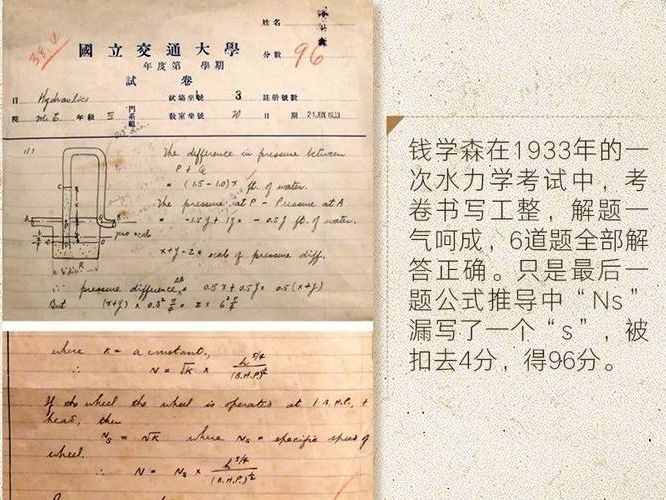 姓名
國立交通大學
分數 96
年度第 學期
試卷
目 Hydraulics 試場坐號 3 註冊號數
院 M.E. 年級 III 門系組 教室坐號 70 日期 24 JUN 1933
(1)
The difference in pressure between
P + Q
= (1.5 - 1.0)x ft. of water.
The pressure at P - Pressure at A
= -1.5y + 1y = -0.5y ft. of water.
x+y-z = scale of pressure diff.
∴ pressure difference = 0.5x + 0.5y = 0.5(x+y)
But (x+y) x 0.3² π/4 = z x 6² π/4
where K = a constant.
∴ N = √K x h^5/4 / (B.H.P.)^½
If the wheel is operated at 1 B.H.P., +
head, then
Ns = √K where Ns = specific speed of
wheel.
∴ N = Ns x h^5/4 / (B.H.P.)^½
钱学森在1933年的一
次水力学考试中，考
卷书写工整，解题一
气呵成，6道题全部解
答正确。只是最后一
题公式推导中“Ns”
漏写了一个“s”，被
扣去4分，得96分。